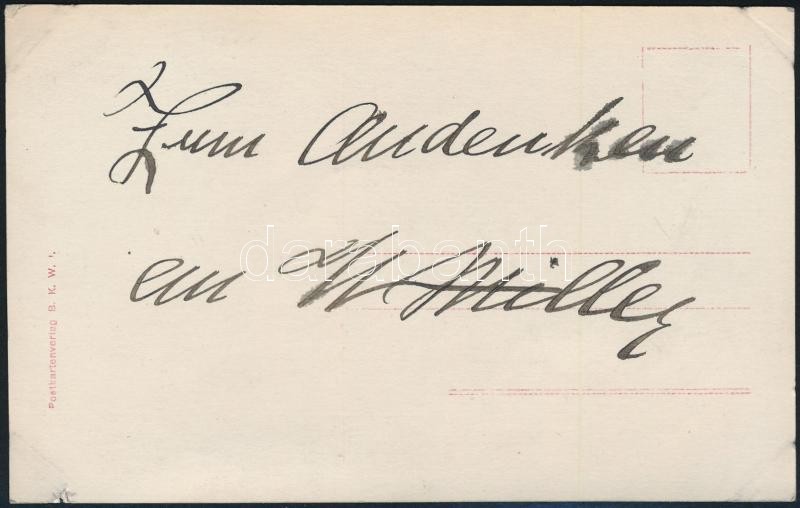 Zum Andenken
an W Miller
Postkartenverlag B. K. W. I.
darabanth